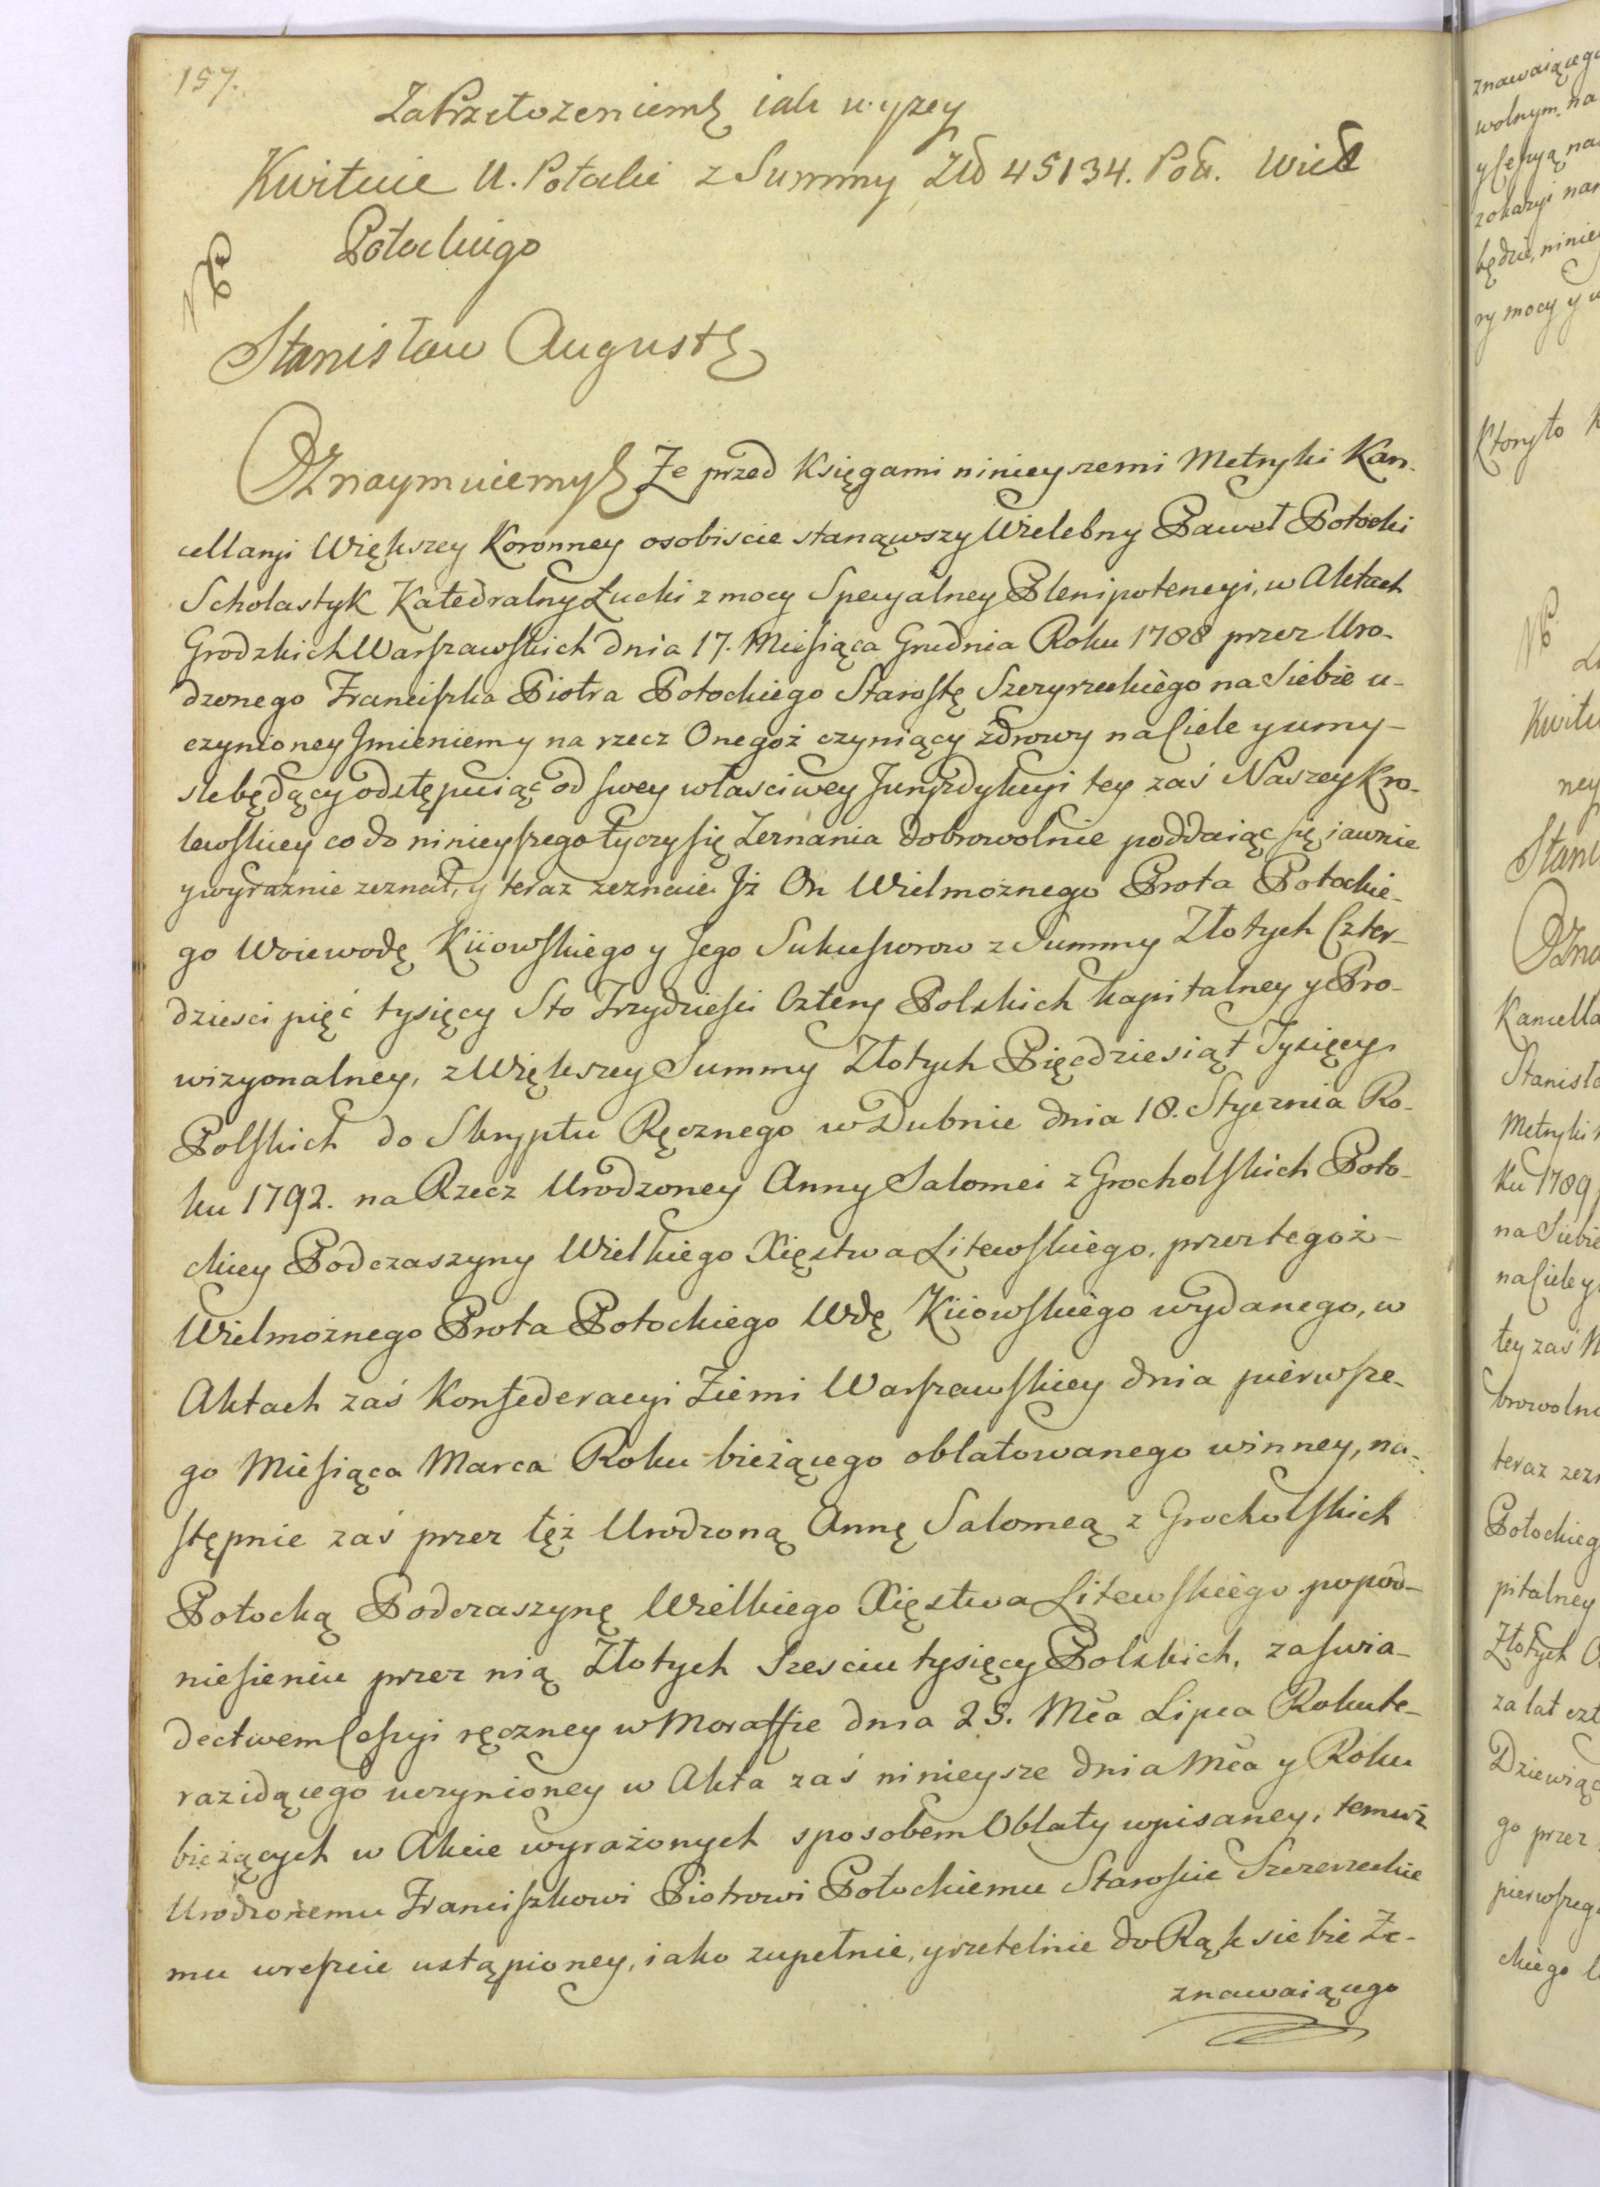 157.
Za Przełożeniem iak wyzey
Kwituie U. Potocki z Summy Zło 45134. Pol. Wiel
Potockiego
Stanisław August
Oznaymuiemy Że przed Księgami ninieyszemi Metryki Kan-
cellaryi Większey Koronney osobiscie stanąwszy Wielebny Paweł Potocki
Scholastyk Katedralny Łucki z mocy Specyalney Plenipotencyi, w Aktach
Grodzkich Warszawskich dnia 17. Miesiąca Grudnia Roku 1788 przez Uro-
dzonego Franciszka Piotra Potockiego Starostę Szczyrzeckiego na Siebie u-
czynioney Jmieniem y na rzecz Onegoż czyniący zdrowy na Ciele y umy-
sle będący odstępuiąc od swey własciwey Juryzdykcyi tey zaś Naszey Kro-
lewskiey co do ninieyszego tyczy się Zeznania dobrowolnie poddaiąc się iawnie
y wyraźnie zeznał, y teraz zeznaie Jż On Wielmoznego Prota Potockie-
go Woiewodę Kiiowskiego y Jego Sukcesorow z Summy Złotych Czter-
dziesci pięć tysięcy Sto Trzydziesci Cztery Polskich kapitalney y Pro-
wizyonalney, z Większey Summy Złotych Pięcdziesiąt Tysięcy
Polskich do Skryptu Ręcznego w Dubnie dnia 18. Stycznia Ro-
ku 1792. na Rzecz Urodzoney Anny Salomei z Grocholskich Poto-
ckiey Podczaszyny Wielkiego Xięstwa Litewskiego, przez tegoż
Wielmoznego Prota Potockiego Wdę Kiiowskiego wydanego, w
Aktach zaś Konfederacyi Ziemi Warszawskiey dnia pierwsze-
go Miesiąca Marca Roku bieżącego oblatowanego winney, na-
stępnie zaś przez tęż Urodzoną Annę Salomeą z Grocholskich
Potocką Podczaszynę Wielkiego Xięstwa Litewskiego popod-
niesieniu przez nią Złotych Szesciu tysięcy Polskich, zaswia-
dectwem Cessyi ręczney w Moraffie dnia 25. Mča Lipca Roku te-
raz idącego uczynioney w Akta zaś ninieysze dnia Mča y Roku
bieżących w Akcie wyrażonych sposobem Oblaty wpisaney, temuż
Urodzonemu Franciszkowi Piotrowi Potockiemu Staroscie Szczerzeckie
mu wreszcie ustąpioney, iako zupełnie, y rzetelnie do Rąk siebie Ze-
znawaiącego
znawaiącego
wolnym na
y Cessyą na
z okazyi
będzie, niniey
ry mocy y
Ktory to
Kwitu
ney
Stani
Ozna
Kancella
Stanisła
Metryki
Ku 1789
na Siebie
na Ciele y
tey zaś N
browoln
teraz zez
Potockieg
pitalney
Złotych
za lat czt
Dziewiąc
go przez
pierwszeg
ckiego